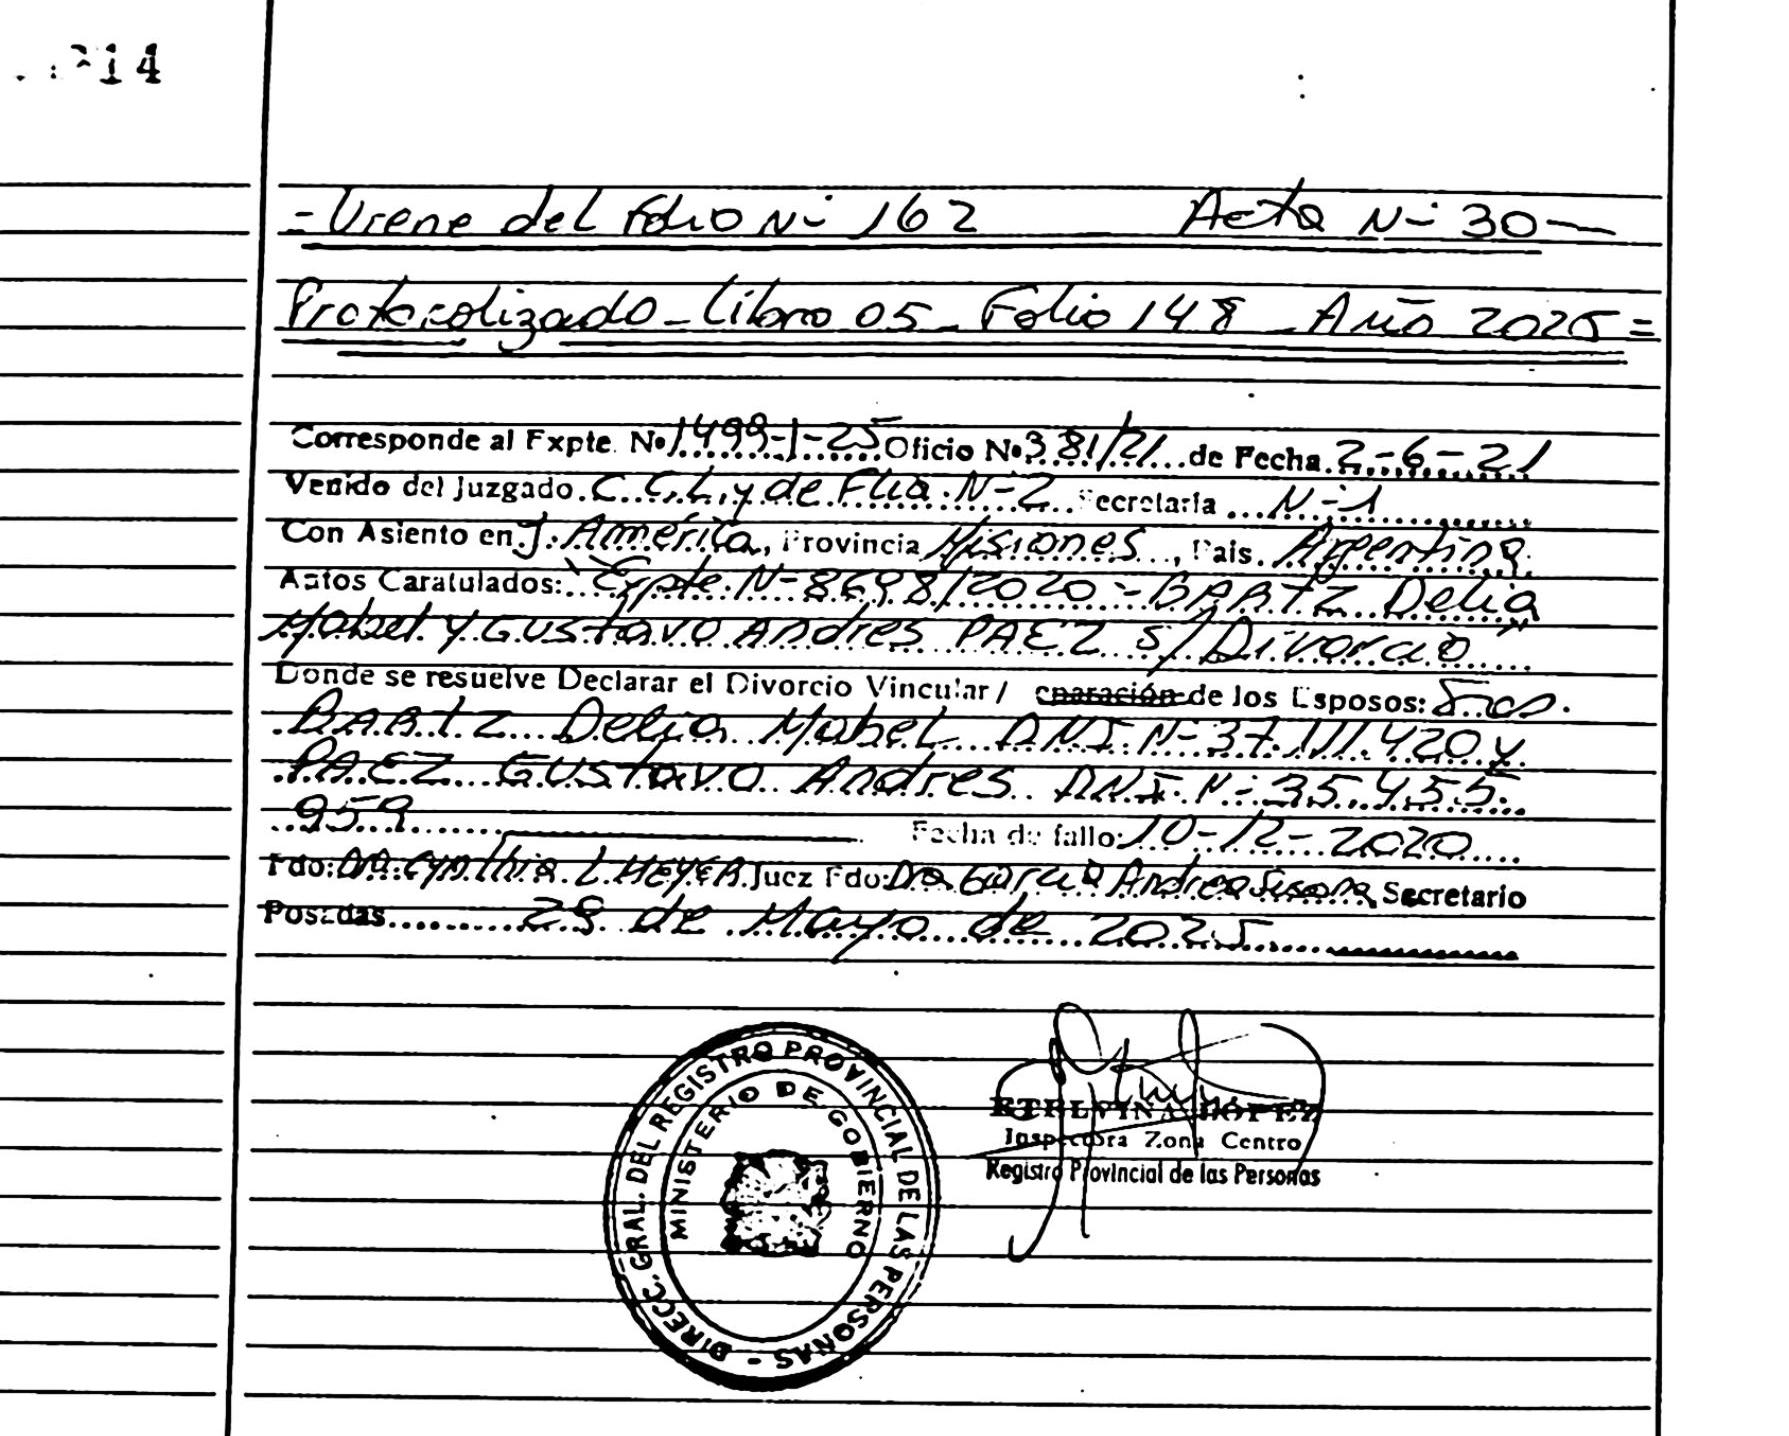 14
= Viene del Folio N- 162 Acta N- 30 —
Protocolizado - Libro 05 - Folio 148 - Año 2025 =
Corresponde al Expte. Nº 1499-1-25 Oficio Nº 381/21 de Fecha 2-6-21
Venido del Juzgado C.C.L. y de Flia. N-2 Secretaría N-1
Con Asiento en J. América, Provincia Misiones, País Argentina
Autos Caratulados: "Expte. N- 8698/2020 - BARTZ Delia
Mabel y Gustavo Andres PAEZ s/ Divorcio"
Donde se resuelve Declarar el Divorcio Vincular / eparación de los Esposos: Sres.
BARTZ Delia Mabel DNI. N- 37.111.420 y
PAEZ Gustavo Andres DNI. N- 35.455.
959 Fecha de fallo: 10-12-2020
Fdo: Dra. Cynthia L. HEYER Juez Fdo: Dra. Garcia Andrea Susana Secretario
Posadas 28 de Mayo de 2025
DIRECC. GRAL. DEL REGISTRO PROVINCIAL DE LAS PERSONAS -
MINISTERIO DE GOBIERNO
ETELVINA LOPEZ
Inspectora Zona Centro
Registro Provincial de las Personas